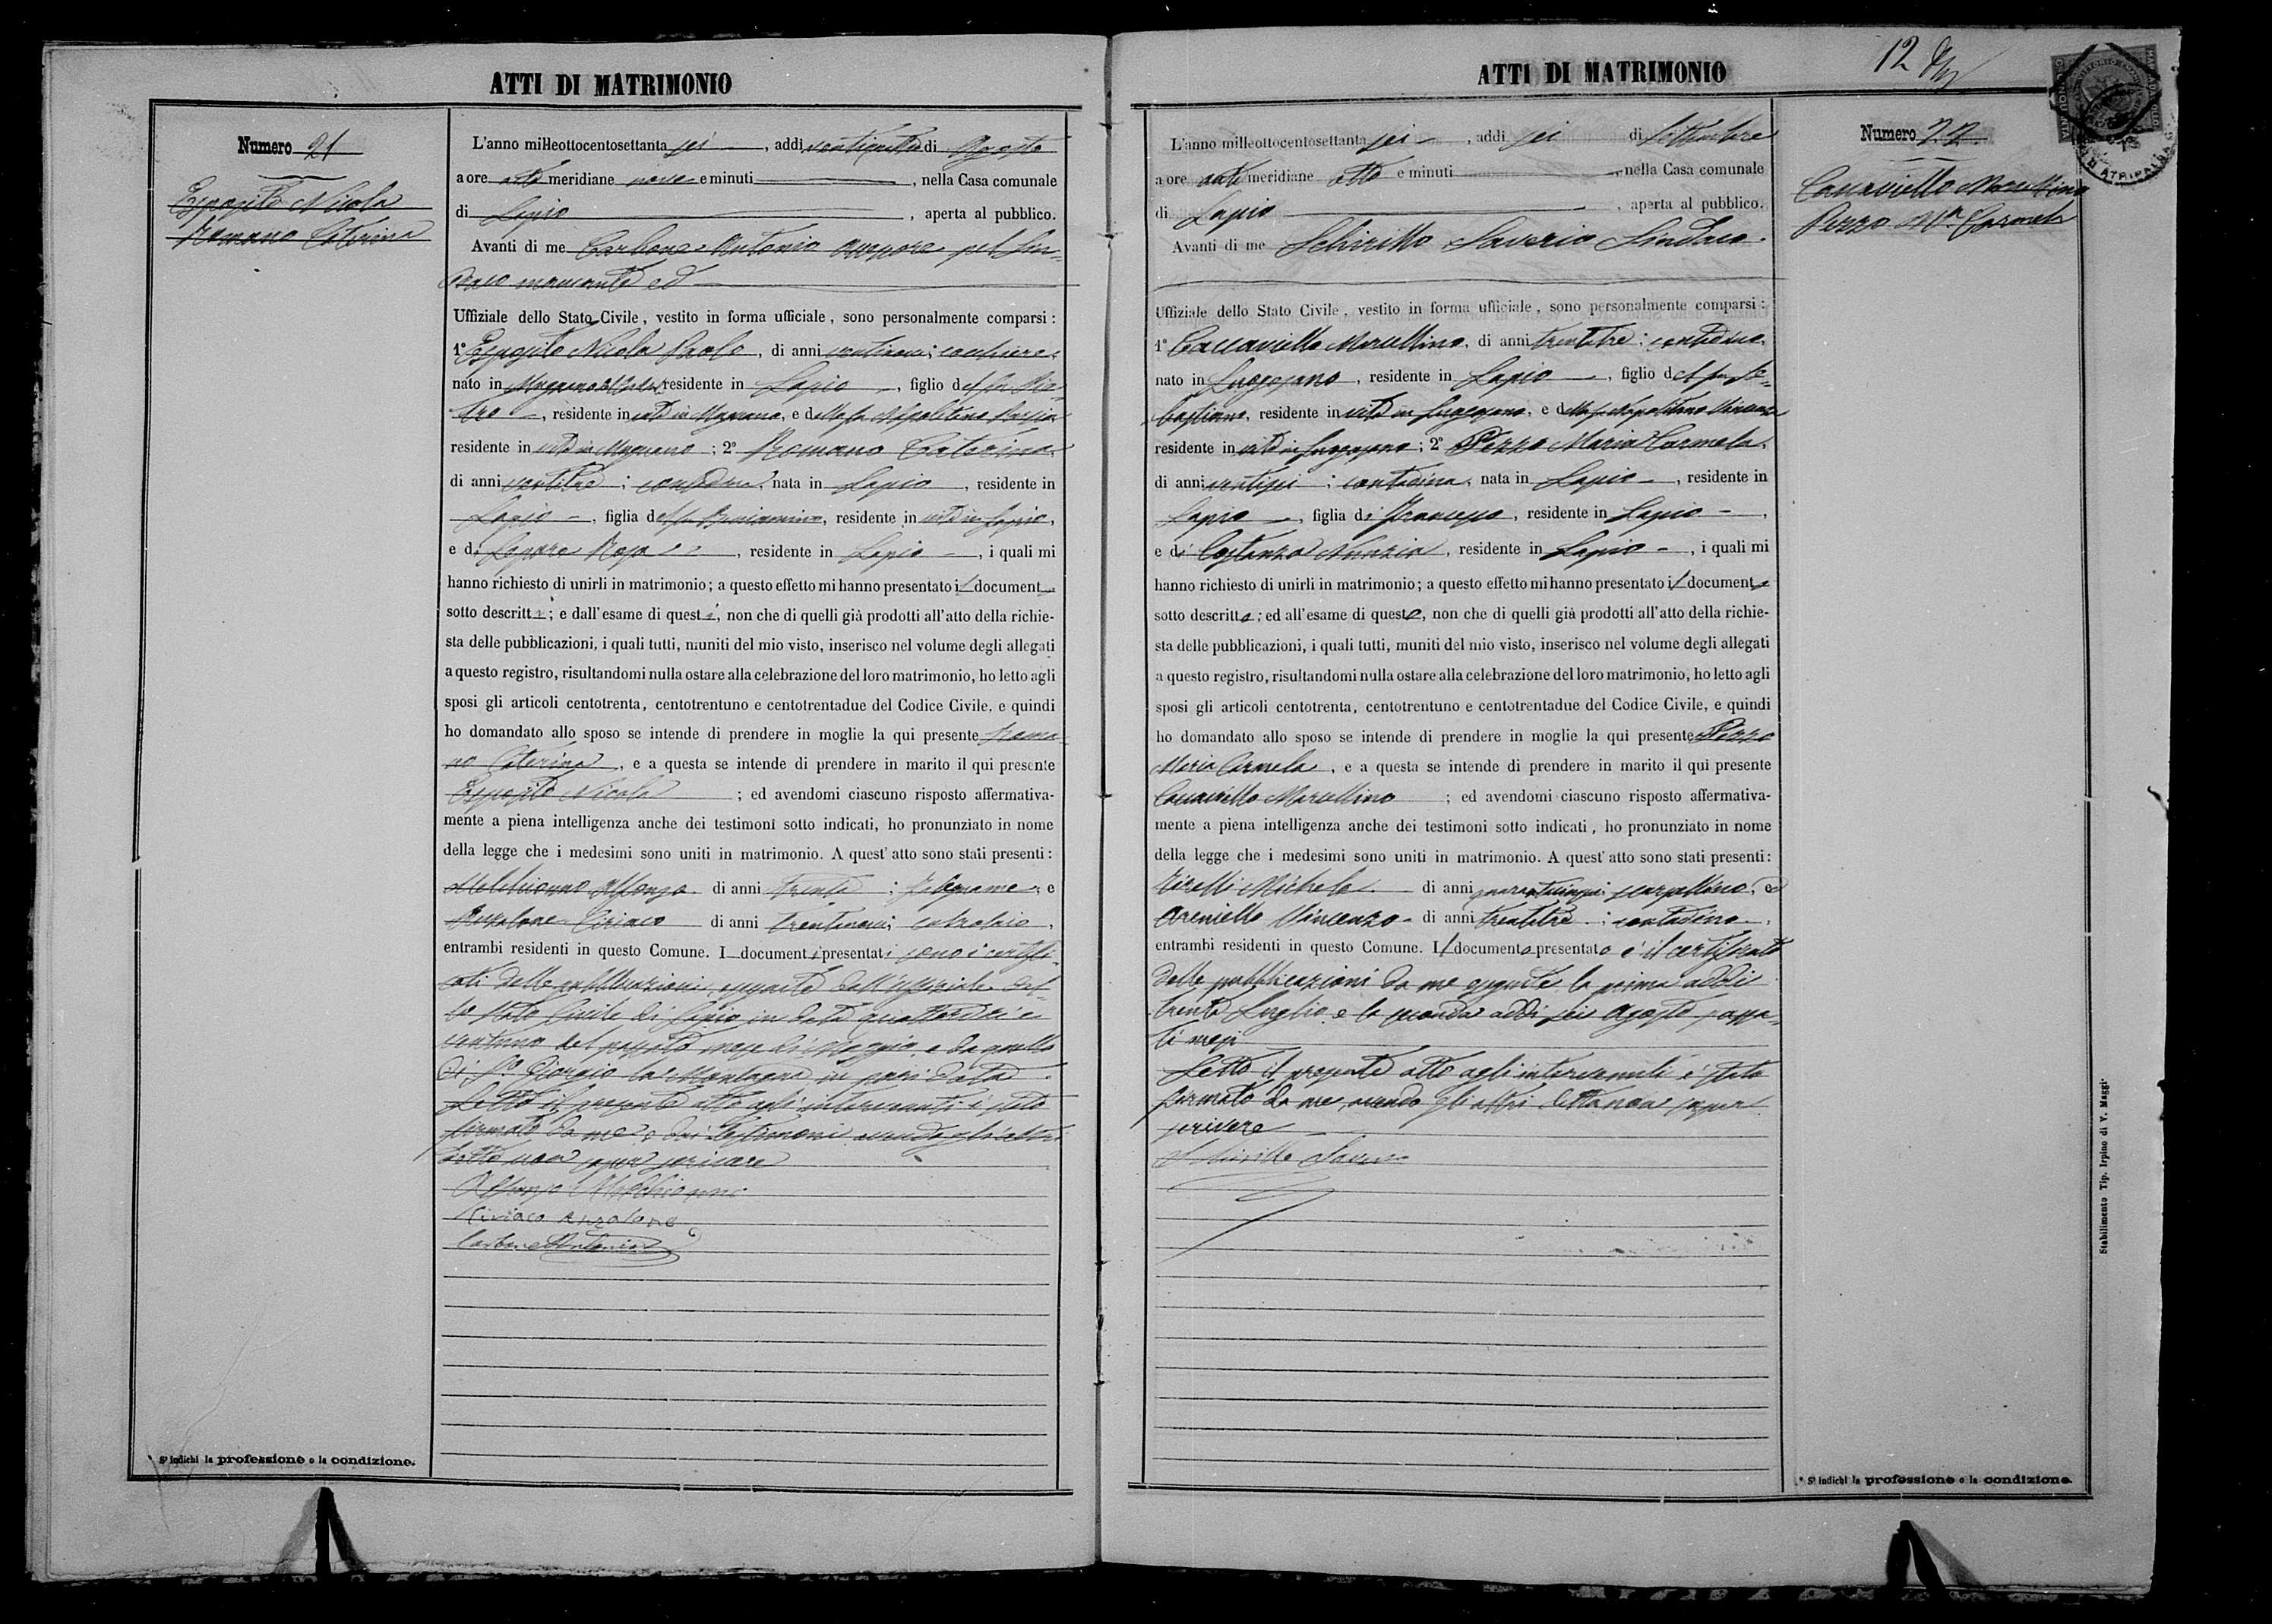 ATTI DI MATRIMONIO
Numero 21
Esposito Nicola
Romano Caterina
L'anno milleottocentosettanta sei, addì di Agosto
a ore meridiane nove e minuti, nella Casa comunale
di Lapio, aperta al pubblico.
Avanti di me Carbone Antonio Assessore pel Sin-
daco mancante ed
Uffiziale dello Stato Civile, vestito in forma ufficiale, sono personalmente comparsi:
1° Esposito Nicola Paolo, di anni ventinove;
nato in, residente in Lapio, figlio del fu
, residente in vita in, e della fu Napolitano
residente in vita in; 2° Romano Caterina,
di anni ventitre; contadina, nata in Lapio, residente in
Lapio, figlia del fu Beniamino, residente in vita in Lapio,
e di Rosa, residente in Lapio, i quali mi
hanno richiesto di unirli in matrimonio; a questo effetto mi hanno presentato i document
sotto descritti; e dall'esame di questi, non che di quelli già prodotti all'atto della richie-
sta delle pubblicazioni, i quali tutti, muniti del mio visto, inserisco nel volume degli allegati
a questo registro, risultandomi nulla ostare alla celebrazione del loro matrimonio, ho letto agli
sposi gli articoli centotrenta, centotrentuno e centotrentadue del Codice Civile, e quindi
ho domandato allo sposo se intende di prendere in moglie la qui presente Roma-
no Caterina, e a questa se intende di prendere in marito il qui presente
Esposito Nicola; ed avendomi ciascuno risposto affermativa-
mente a piena intelligenza anche dei testimoni sotto indicati, ho pronunziato in nome
della legge che i medesimi sono uniti in matrimonio. A quest'atto sono stati presenti:
Melchionno Alfonso di anni trenta; falegname; e
Anzalone Ciriaco di anni trentanove; calzolaio,
entrambi residenti in questo Comune. I documenti presentati sono i certifi-
cati delle pubblicazioni eseguite dall'uffiziale del-
lo Stato Civile di Lapio in data quattordici e
ventuno del passato mese di Maggio e da quello
di S. Giorgio la Montagna in pari data
Letto il presente atto agli intervenuti è stato
firmato da me e dai testimoni avendo gli altri
detto non saper scrivere
Alfonso Melchionno
Ciriaco Anzalone
Carbone Antonio
* S'indichi la professione o la condizione.
ATTI DI MATRIMONIO
12
L'anno milleottocentosettanta sei, addì sei di Settembre
a ore anti meridiane otto e minuti, nella Casa comunale
di Lapio, aperta al pubblico.
Avanti di me Schiritto Saverio Sindaco
Uffiziale dello Stato Civile, vestito in forma ufficiale, sono personalmente comparsi:
1° Caccaviello Marcellino, di anni trentatre; contadino,
nato in Luogosano, residente in Lapio, figlio del fu Se-
bastiano, residente in vita in Luogosano, e della fu Napolitano Vincenza
residente in vita in Luogosano; 2° Pezzo Maria Carmela,
di anni ventisei; contadina, nata in Lapio, residente in
Lapio, figlia di Francesco, residente in Lapio,
e di Costanza Nunzia, residente in Lapio, i quali mi
hanno richiesto di unirli in matrimonio; a questo effetto mi hanno presentato il documento
sotto descritto; ed all'esame di questo, non che di quelli già prodotti all'atto della richie-
sta delle pubblicazioni, i quali tutti, muniti del mio visto, inserisco nel volume degli allegati
a questo registro, risultandomi nulla ostare alla celebrazione del loro matrimonio, ho letto agli
sposi gli articoli centotrenta, centotrentuno e centotrentadue del Codice Civile, e quindi
ho domandato allo sposo se intende di prendere in moglie la qui presente Pezzo
Maria Carmela, e a questa se intende di prendere in marito il qui presente
Caccaviello Marcellino; ed avendomi ciascuno risposto affermativa-
mente a piena intelligenza anche dei testimoni sotto indicati, ho pronunziato in nome
della legge che i medesimi sono uniti in matrimonio. A quest'atto sono stati presenti:
Tirelli Michele di anni quarantacinque; scarpellino, e
Areniello Vincenzo di anni trentatre; contadino,
entrambi residenti in questo Comune. Il documento presentato è il certificato
delle pubblicazioni da me eseguite la prima addì
trenta Luglio e la seconda addì sei Agosto passa-
ti mesi
Letto il presente atto agli intervenuti è stato
firmato da me, avendo gli altri detto non saper
scrivere
Schiritto Saverio
Numero 22
Caccaviello Marcellino
Pezzo Mª Carmela
* S'indichi la professione o la condizione.
Stabilimento Tip. Irpino di V. Maggi